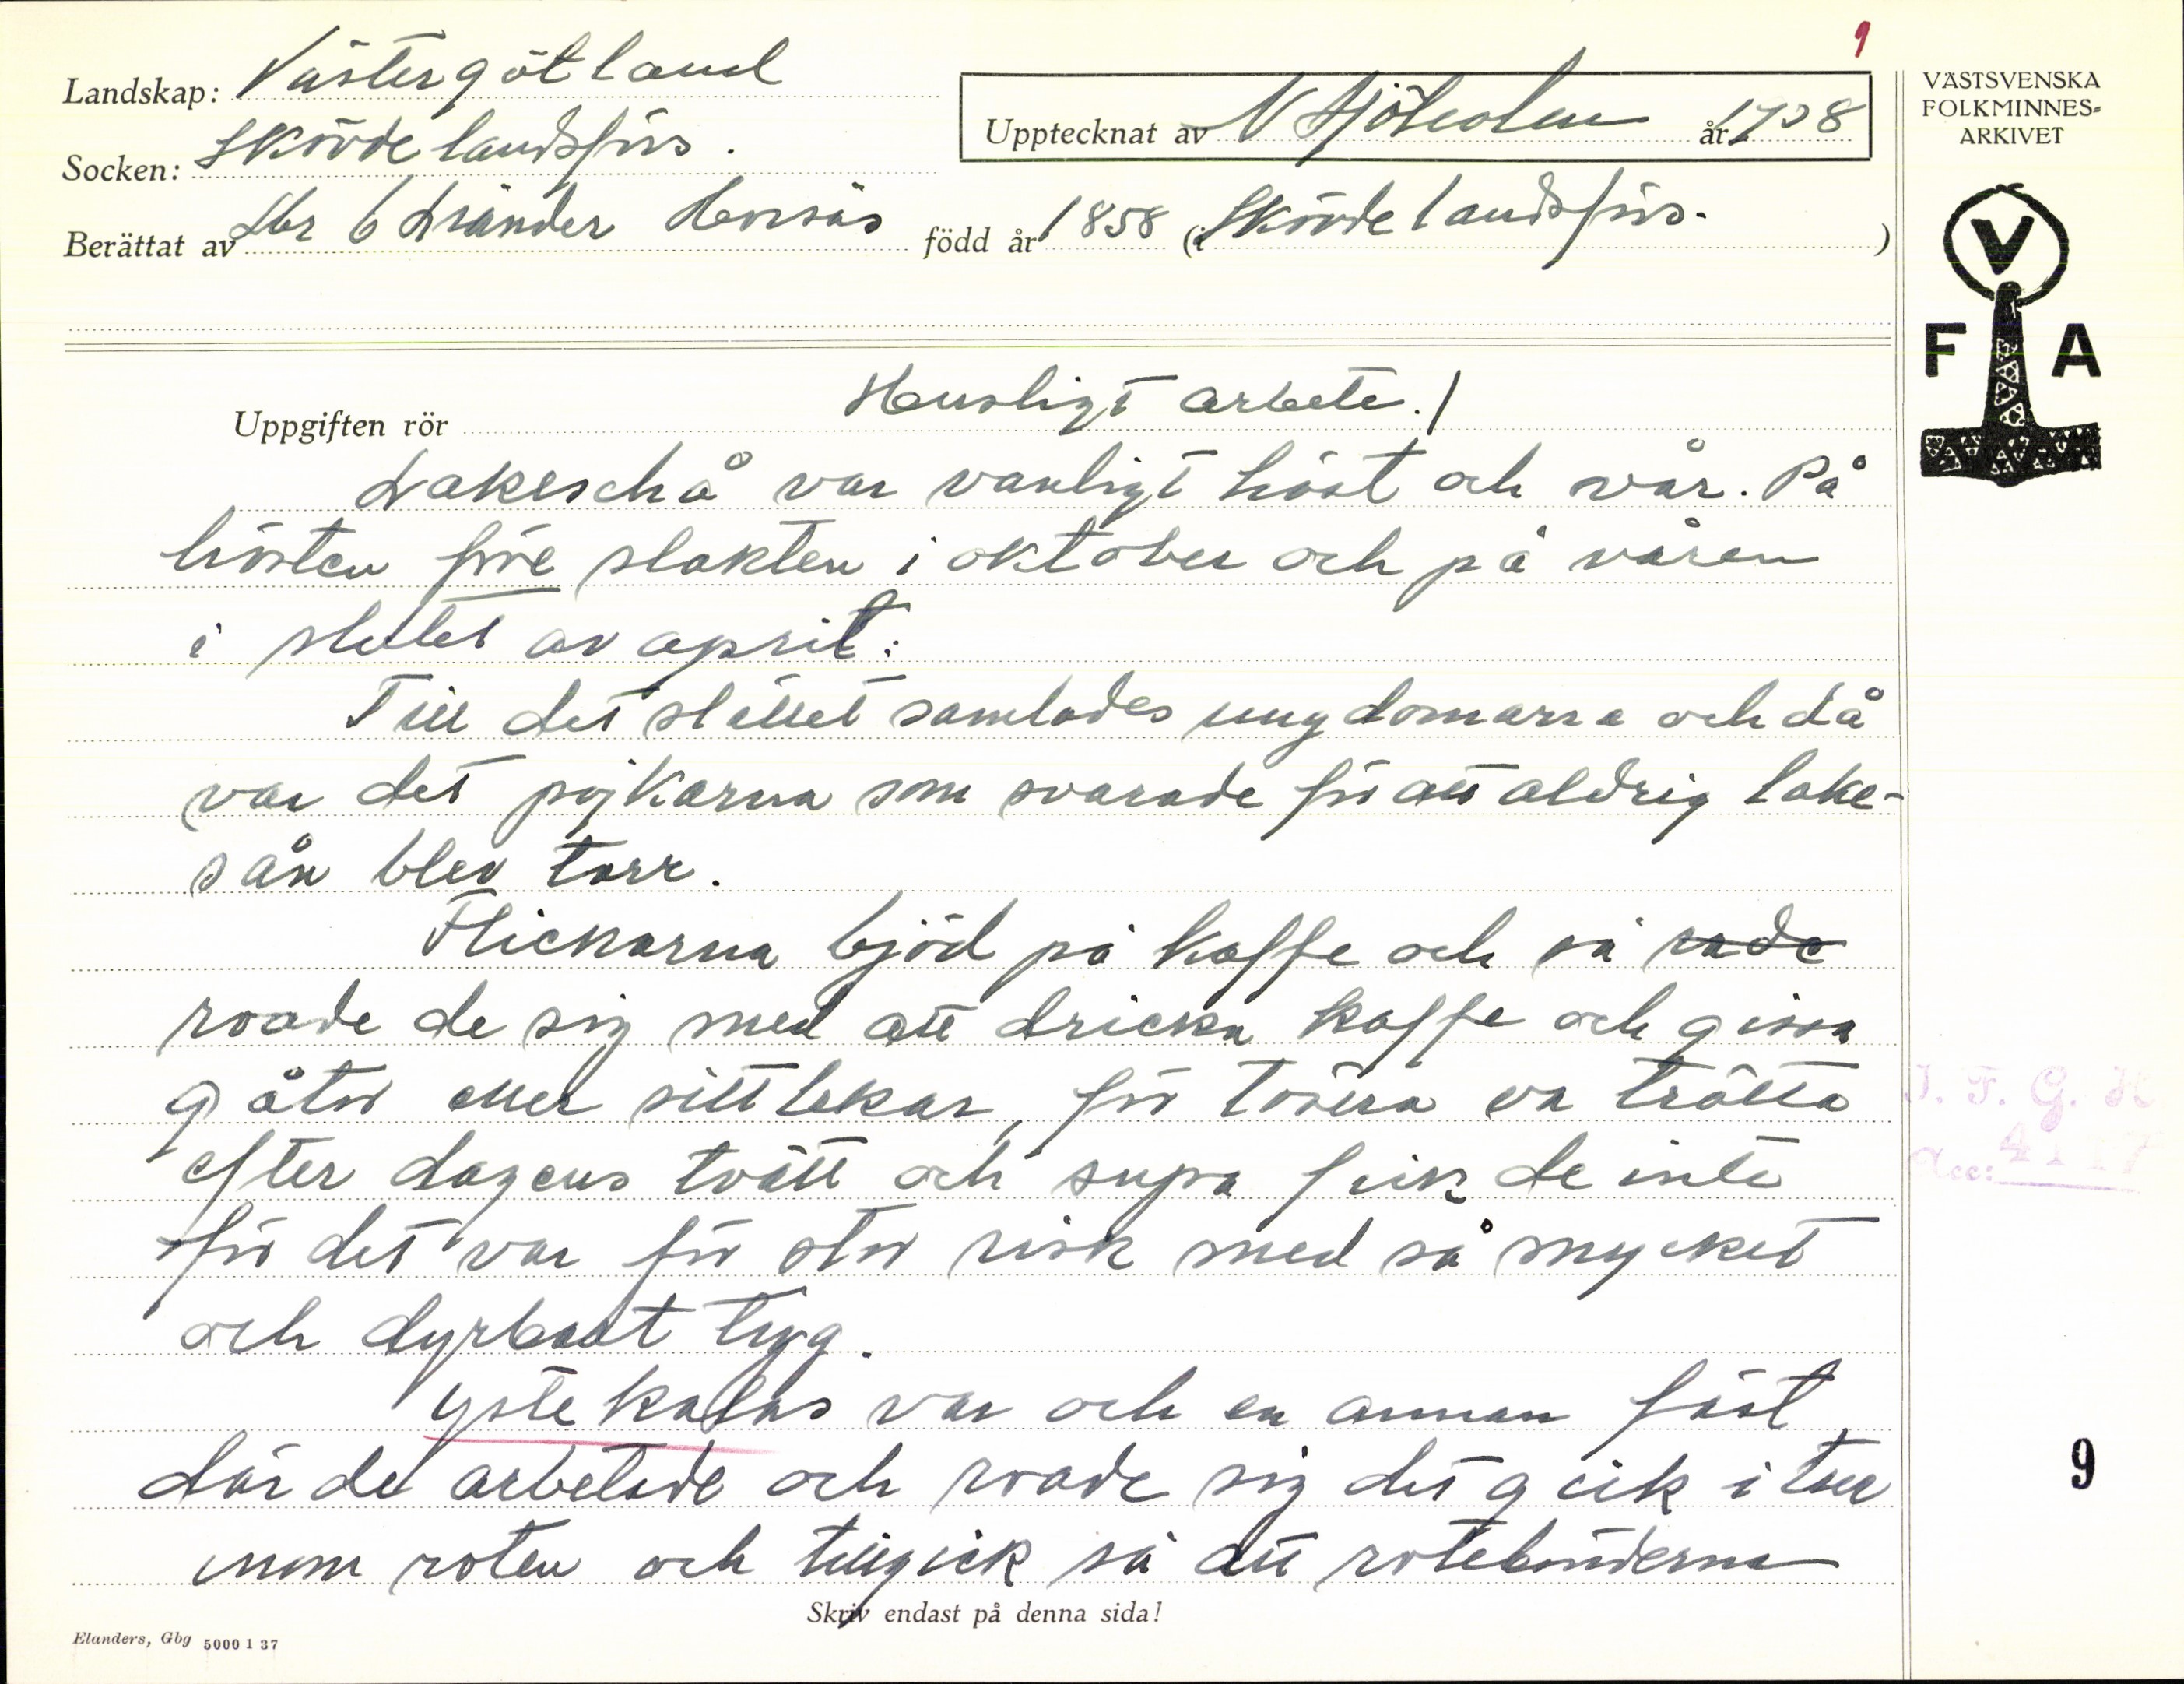 9
Landskap: Västergötland
Upptecknat av N Hjöholm år 1938
VÄSTSVENSKA
FOLKMINNES-
ARKIVET
Socken: Skövde landsförs.
Berättat av 6 född år 1858 (i Skövde landsförs. )
V
F A
Uppgiften rör Husligt arbete. /
Lakeschå var vanligt höst och vår. På
hösten före slakten i oktober och på våren
i slutet av april.
Till det stället samlades ungdomarna och då
var det pojkarna som svarade för att aldrig lake-
sån blev torr.
Flickarna bjöd på kaffe och så rade
roade de sig med att dricka kaffe och gissa
gåtor eller sittlekar, för va trötta
efter dagens tvätt och supa fick de inte
för det var för stor risk med så mycket
och dyrbart tyg.
ystekalas var och en annan fäst
där de arbetade och roade sig det gick i tur
inom roten och tillgick så att rotebönderna
J. F. G. H
Acc: 4117
9
Skriv endast på denna sida!
Elanders, Gbg 5000 1 37